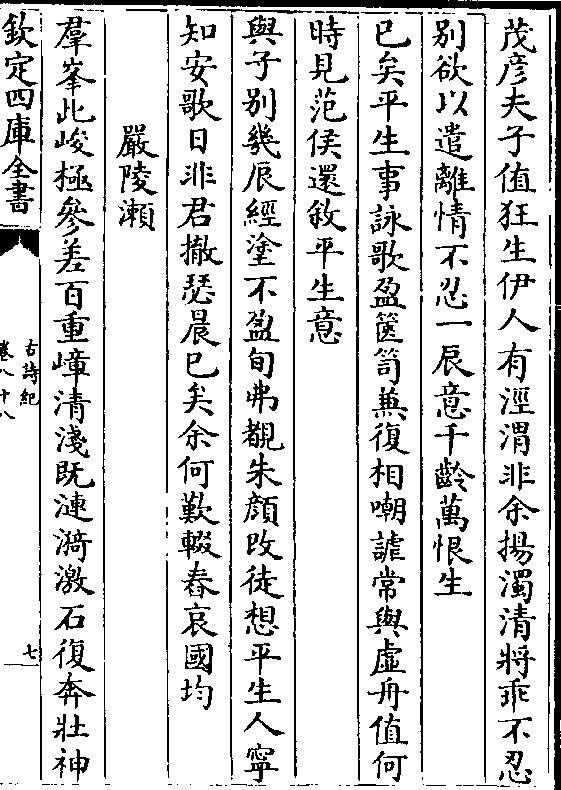 茂彦夫子值狂生伊人有涇渭非余揚濁清將乖不忍
別欲以遣離情不忍一辰意千齡萬恨生
已矣平生事詠歌盈篋笥兼復相嘲謔常與虛舟值何
時見范侯還敘平生意
與子別幾辰經塗不盈旬弗覩朱顔改徒想平生人寧
知安歌日非君撤瑟晨已矣余何歎輟舂哀國均
嚴陵瀨
羣峯此峻極參差百重嶂清淺既漣漪激石復奔壯神
欽定四庫全書
古詩紀
卷八十八
七